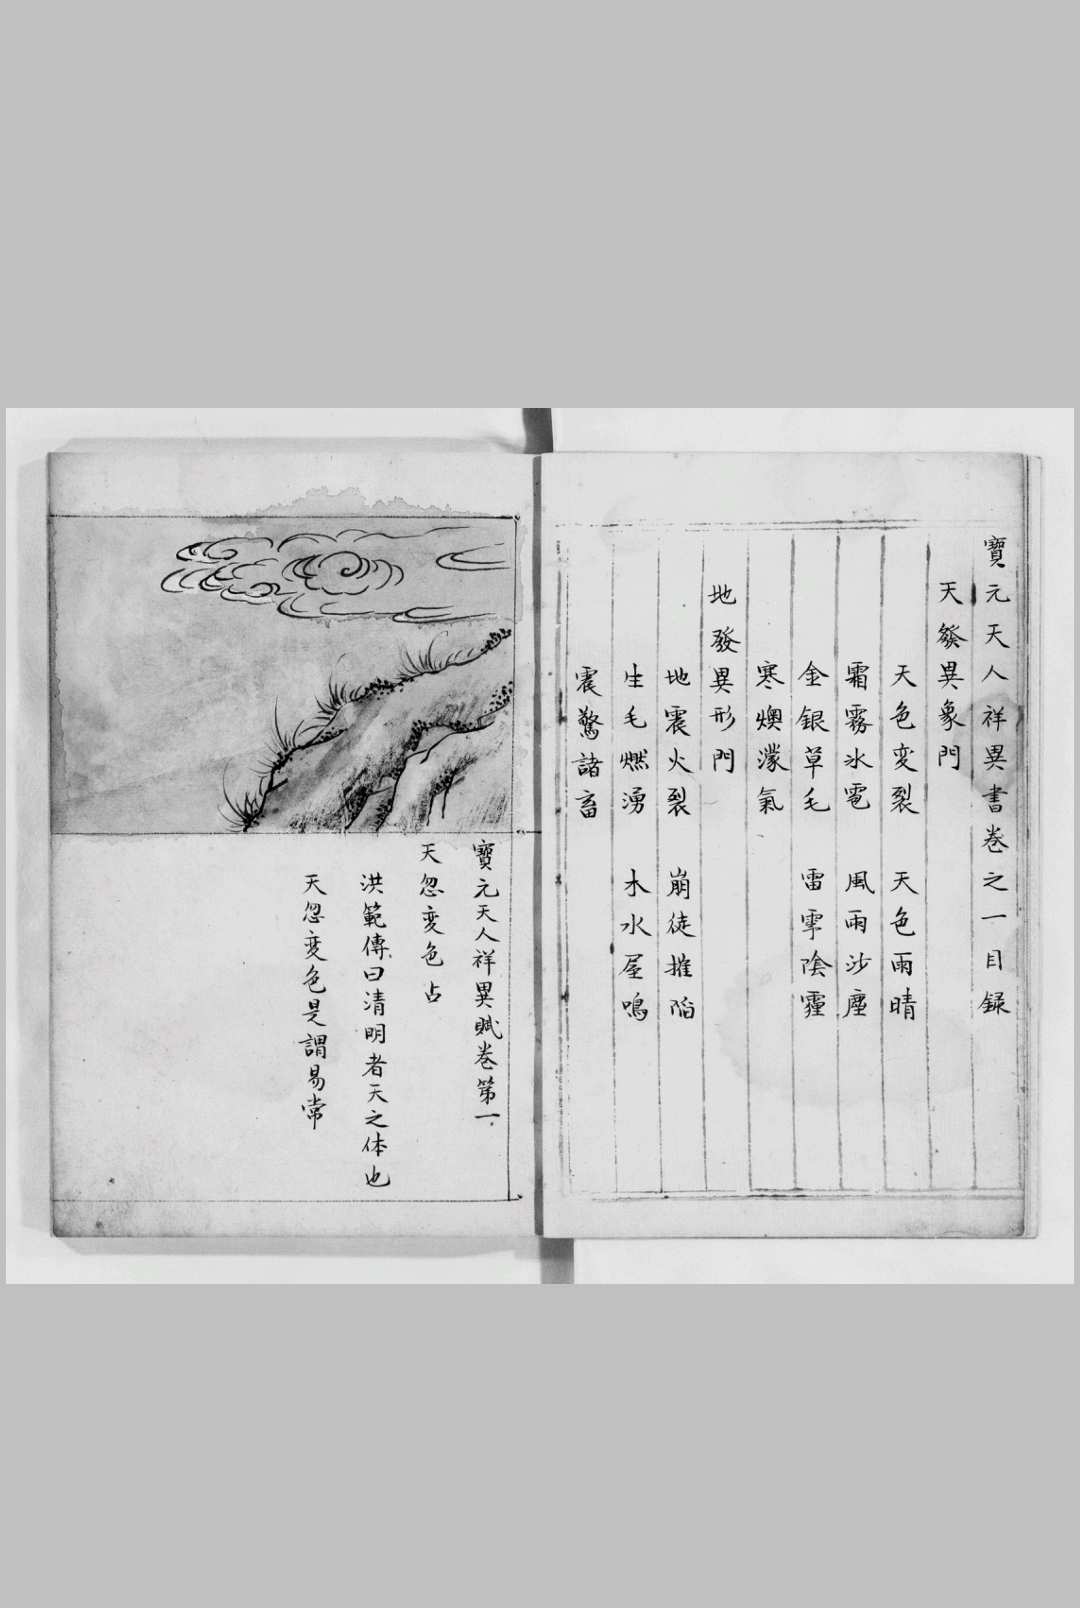 寶元天人祥異書卷之一目録
天發異象門
天色变裂　天色雨晴
霜霧氷雹　風雨沙塵
金銀草毛　雷霏陰霾
寒燠濛氣
地發異形門
地震火裂　崩徒摧陷
生毛燃湧　木水屋鳴
震驚諸畜
寶元天人祥異賦卷第一
天忽变色占
洪範傳曰清明者天之体也
天忽变色是謂易常